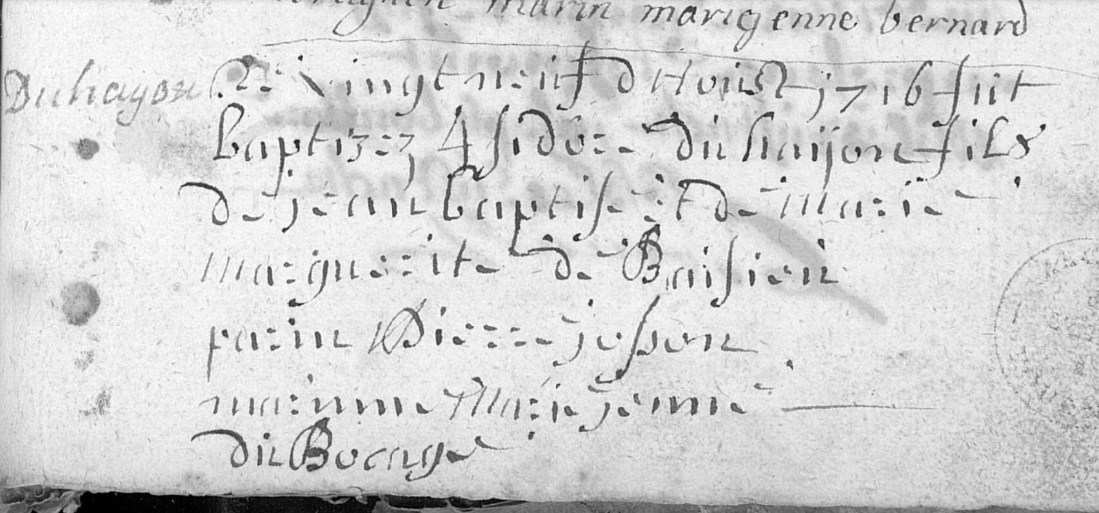 marin marigenne bernard
Duhayon Le vingt neuf d Houst 1716 fut
baptizez Isidore du haijon fils
de jean baptise et de Marie
marguerite de Baisieu
parin Pierre josson
marinne Marie jenne
du Bocage